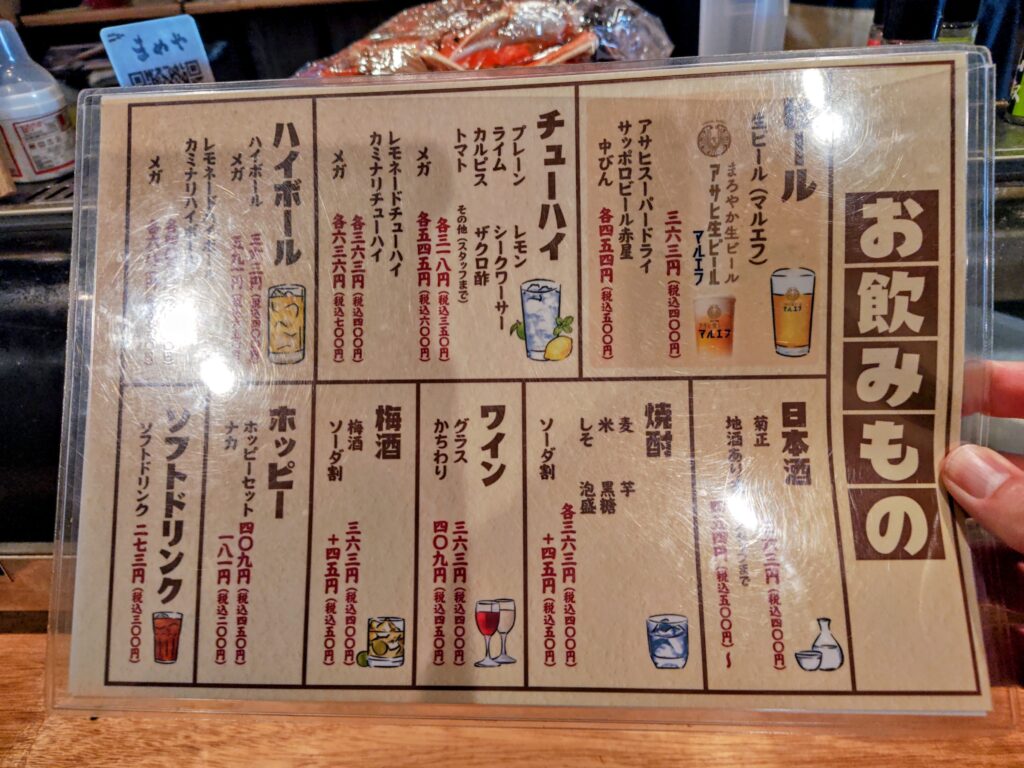 お飲みもの
生ビール(マルエフ)
まろやか生ビール
アサヒ生ビール
マルエフ
三六三円(税込四〇〇円)
アサヒスーパードライ
サッポロビール赤星
中びん
各四五四円(税込五〇〇円)
マルエフ
マルエフ
チューハイ
プレーン
レモン
ライム
シークワーサー
カルピス
ザクロ酢
トマト
その他(スタッフまで)
各三一八円(税込三五〇円)
メガ
各五四五円(税込六〇〇円)
レモネードチューハイ
カミナリチューハイ
各三六三円(税込四〇〇円)
メガ
各六三六円(税込七〇〇円)
ハイボール
ハイボール
メガ
カミナリハイ
メガ
日本酒
菊正
地酒あり
焼酎
麦
芋
米
黒糖
しそ
泡盛
各三六三円(税込四〇〇円)
ソーダ割
+四五円(税込五〇円)
ワイン
グラス
三六三円(税込四〇〇円)
かちわり
四〇九円(税込四五〇円)
梅酒
梅酒
三六三円(税込四〇〇円)
ソーダ割
+四五円(税込五〇円)
ホッピー
ホッピーセット
四〇九円(税込四五〇円)
ナカ
一八一円(税込二〇〇円)
ソフトドリンク
ソフトドリンク
二七三円(税込三〇〇円)